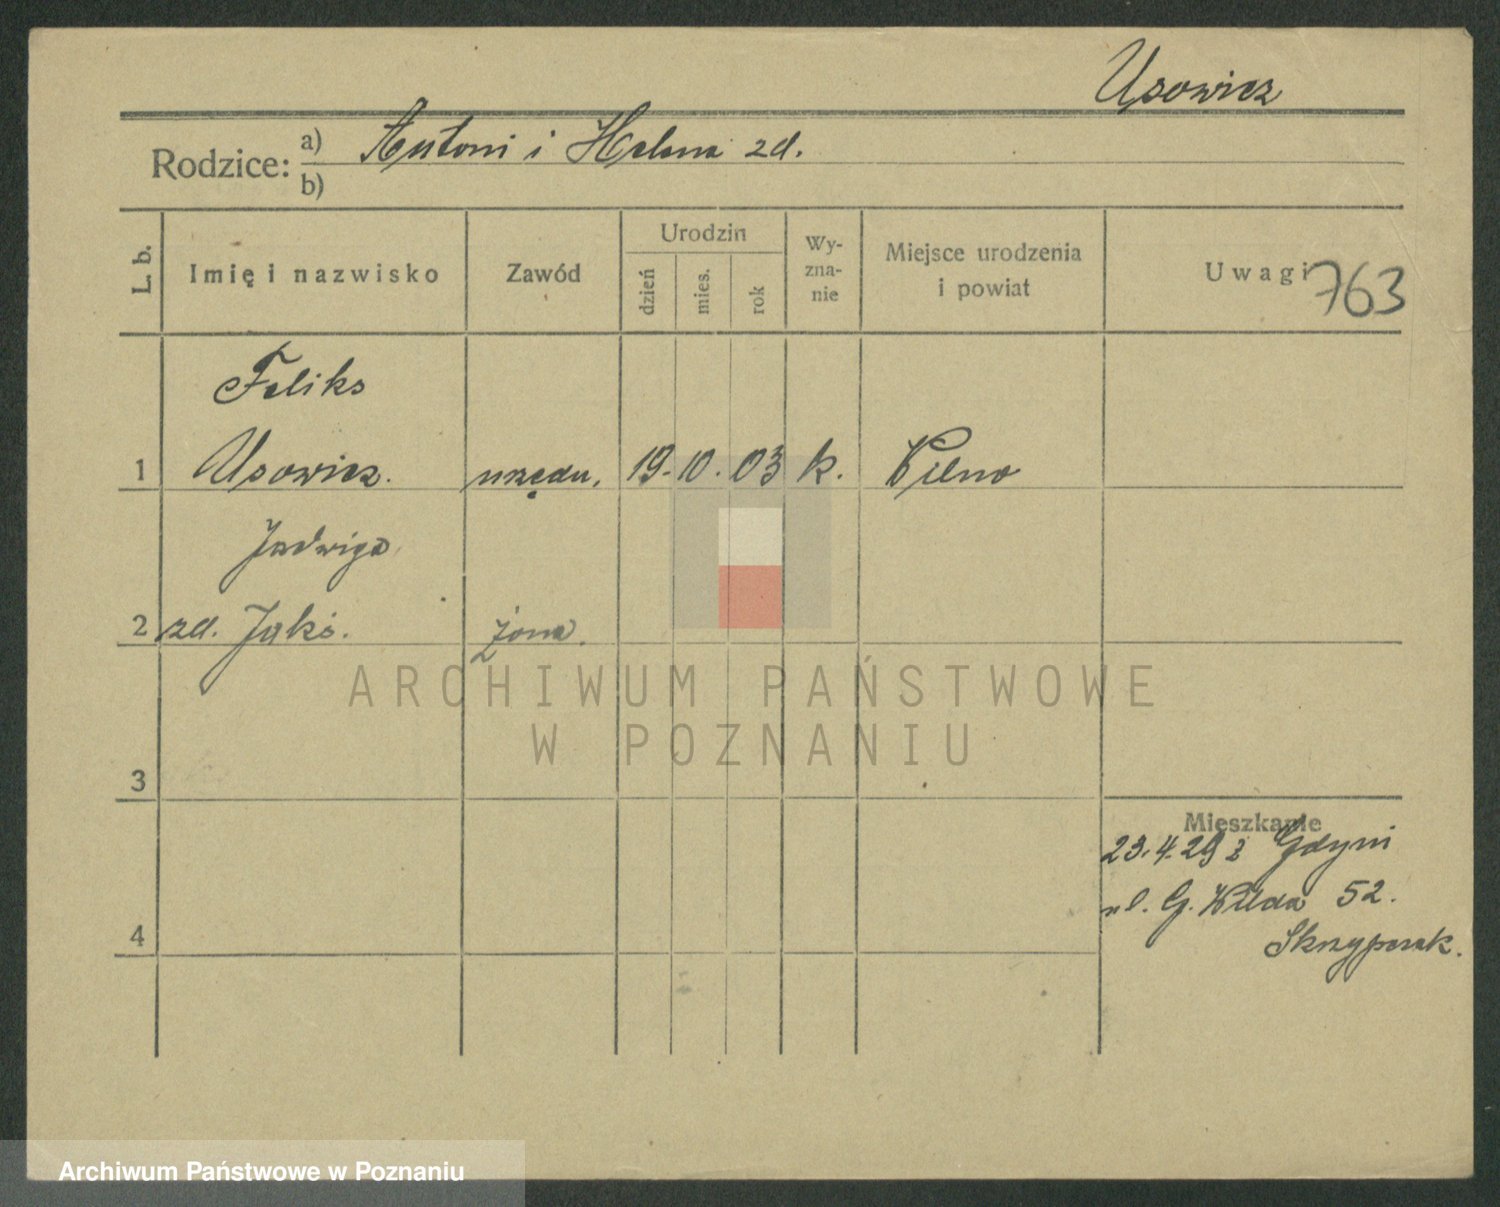 Usowicz
Rodzice: a) Antoni i Helena zd.
b)
L. b. Imię i nazwisko Zawód Urodzin dzień mies. rok Wy-zna-nie Miejsce urodzenia i powiat Uwagi 763
Feliks
1 Usowicz. urzędn. 19. 10. 03 k. Wilno
Jadwiga
2 zd. żona.
ARCHIWUM PAŃSTWOWE
W POZNANIU
3
Mieszkanie
23.4.29 z Gdyni
ul. G. Wilda 52.
4
Archiwum Państwowe w Poznaniu